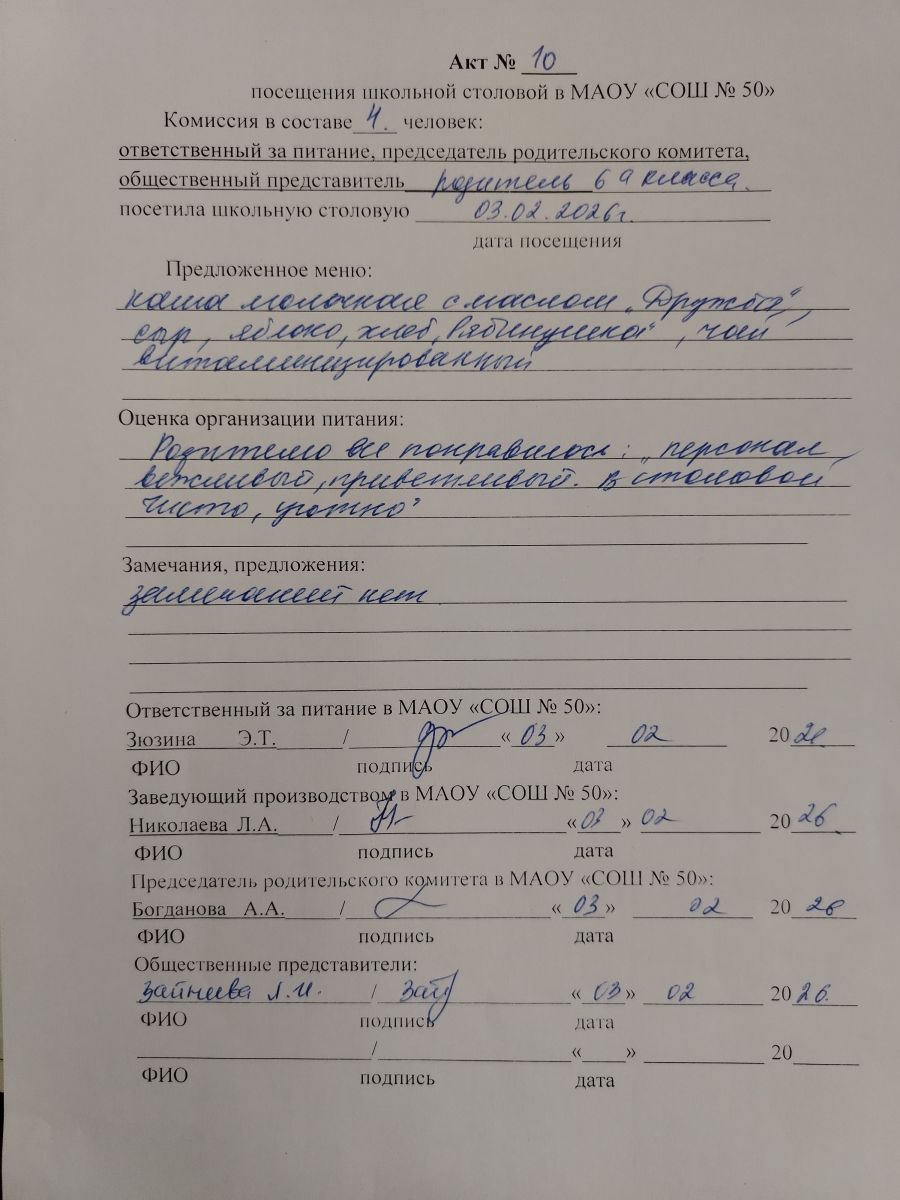 Акт № 10
посещения школьной столовой в МАОУ «СОШ № 50»
Комиссия в составе 4. человек:
ответственный за питание, председатель родительского комитета,
общественный представитель родитель 6 а класса.
посетила школьную столовую 03.02.2026г.
дата посещения
Предложенное меню:
каша молочная с маслом „Дружба",
сыр, яблоко, хлеб „Рябинушка", чай
витаминизированный
Оценка организации питания:
Родителю все понравилось: „персонал
вежливый, приветливый. В столовой
чисто, уютно"
Замечания, предложения:
замечаний нет
Ответственный за питание в МАОУ «СОШ № 50»:
Зюзина Э.Т. / «03» 02 2026
ФИО подпись дата
Заведующий производством в МАОУ «СОШ № 50»:
Николаева Л.А. / «03» 02 2026
ФИО подпись дата
Председатель родительского комитета в МАОУ «СОШ № 50»:
Богданова А.А. / «03» 02 2026
ФИО подпись дата
Общественные представители:
Л.И. / «03» 02 2026
ФИО подпись дата
/ « » 20
ФИО подпись дата